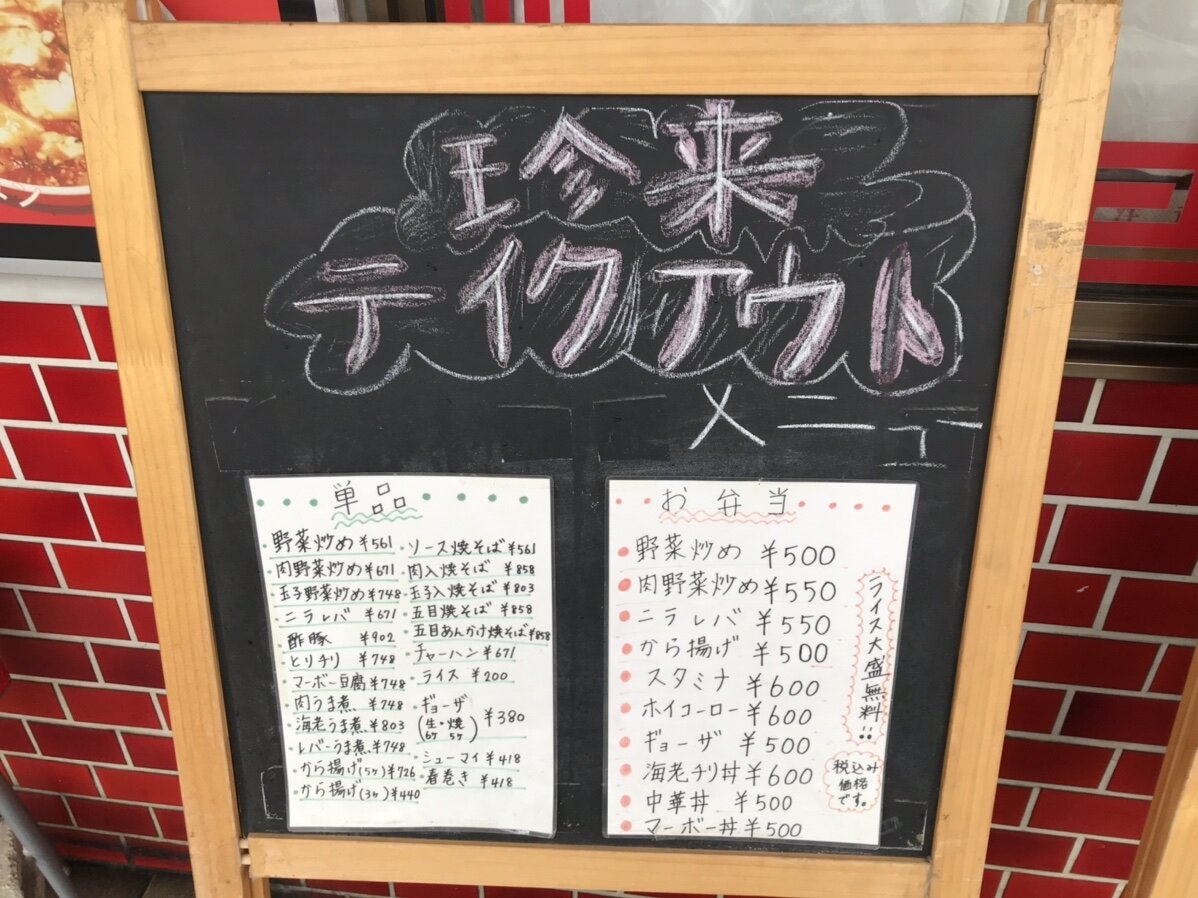 珍来
テイクアウト
メニュー
単品
・野菜炒め ¥561
・肉野菜炒め ¥671
・玉子野菜炒め ¥748
・ニラレバ ¥671
・酢豚 ¥902
・とりチリ ¥748
・マーボー豆腐 ¥748
・肉うま煮 ¥748
・海老うま煮 ¥803
・レバーうま煮 ¥748
・から揚げ(5ヶ) ¥726
・から揚げ(3ヶ) ¥440
・ソース焼そば ¥561
・肉入焼そば ¥858
・玉子入焼そば ¥803
・五目焼そば ¥858
・五目あんかけ焼そば ¥858
・チャーハン ¥671
・ライス ¥200
・ギョーザ
(生・焼 ¥380
6ヶ 5ヶ)
・シューマイ ¥418
・春巻き ¥418
お弁当
野菜炒め ¥500
肉野菜炒め ¥550
ニラレバ ¥550
から揚げ ¥500
スタミナ ¥600
ホイコーロー ¥600
ギョーザ ¥500
海老チリ丼 ¥600
中華丼 ¥500
マーボー丼 ¥500
ライス大盛無料!!
税込み
価格
です。